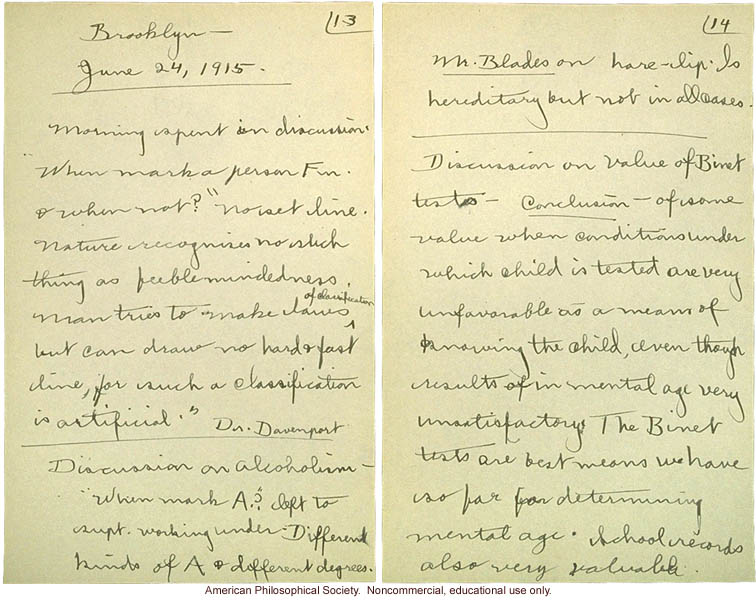 13
Brooklyn —
June 24, 1915.
Morning spent in discussion.
"When mark a person Fm.
& when not?" "No set line.
Nature recognises no such
thing as feeblemindedness.
of classification
Man tries to make laws ^
but can draw no hard & fast
line, for such a classification
is artificial." Dr. Davenport
Discussion on Alcoholism —
"When mark A.?" left to
supt. working under. Different
kinds of A & different degrees.
14
Mr. Blades on hare-lip. Is
hereditary but not in all cases.
Discussion on value of Binet
tests — Conclusion — of some
value when conditions under
which child is tested are very
unfavorable as a means of
knowing the child, even though
results of in mental age very
unsatisfactory. The Binet
tests are best means we have
so far for determining
mental age. School records
also very valuable.
American Philosophical Society. Noncommercial, educational use only.